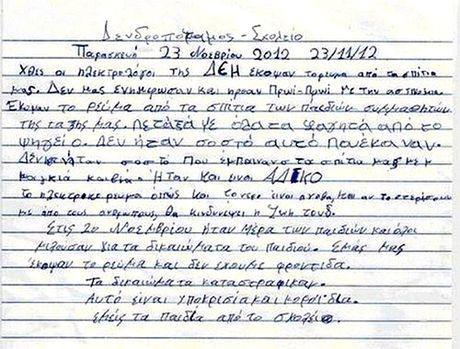 Δενδροπόταμος - Σχολείο
Παρασκευή 23 Νοεβρίου 2012 23/11/12
Χθες οι ηλεκτρολόγοι της ΔΕΗ έκοψαν το ρευμα από τα σπίτια
μας. Δεν μας ενημέρωσαν και ηρθαν Πρωί-Πρωί με την αστυνομία.
Έκοψαν το ρεύμα από τα σπίτια των παιδιών συμμαθητών
της ταξης μας. Πέταξαμε όλα τα φαγητα από το
ψηγείο. Δεν ήταν σοστό αυτό που έκαναν.
Δεν ήταν σοστό που έμπαιναν στα σπίτια μας με
μαγκιά και βία. Ήταν και είναι ΑΔΙΚΟ
Το ηλεκτρικο ρευμα όπως και το νερο είναι αγαθα και αν το στερίσουμε
με από τους ανθρώπους θα κινδυνέψει η ζωή τους.
Στις 20 Νοεμβρίου ήταν Μέρα των παιδιών και όλοι
μιλούσαν για τα δικαιώματα του παιδιού. Εμάς μας
έκοψαν το ρεύμα και δεν έχουμε φροντίδα.
Τα δικαιώματα καταστράφηκαν.
Αυτό είναι υποκρισία και κοροϊδία.
εμείς τα παιδιά από το σχολείο.